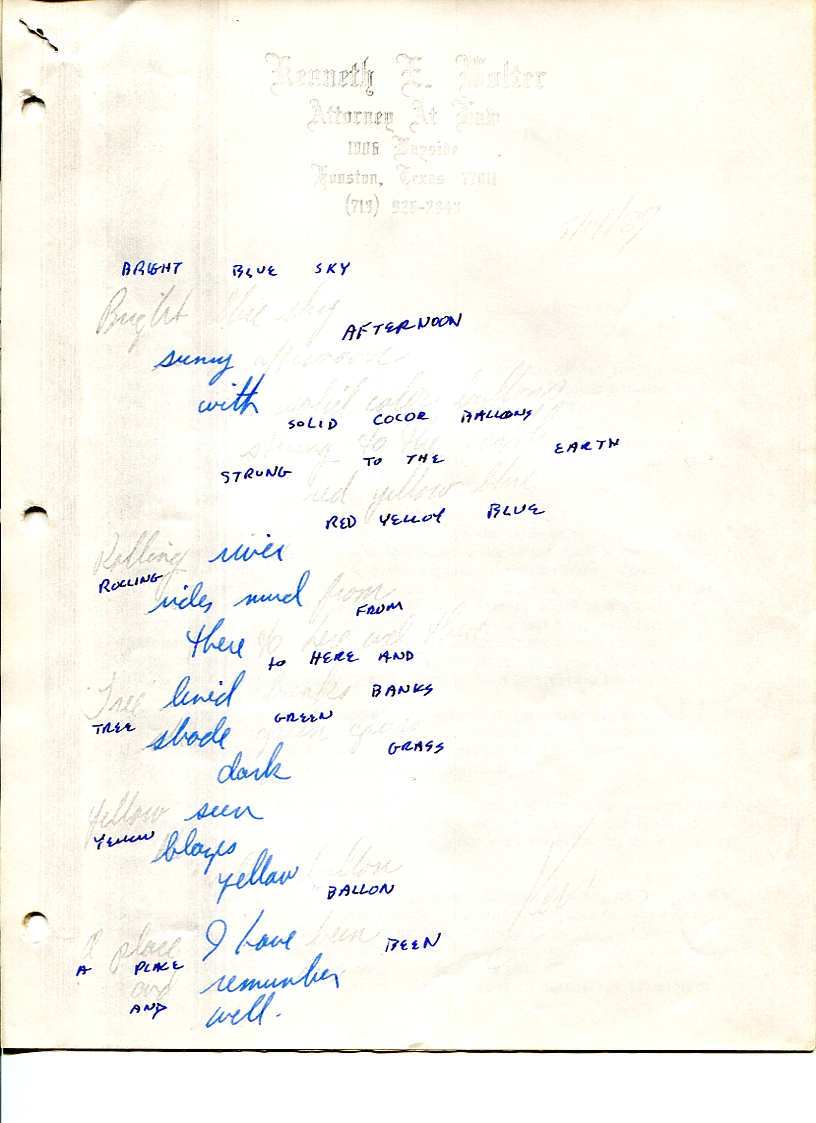 Kenneth E. Wolter
Attorney At Law
1906 Wayside
Houston, Texas 77011
(713) 928-2343
BRIGHT BLUE SKY
Bright blue sky
AFTERNOON
sunny afternoon
with solid color
SOLID COLOR BALLONS
string to the
STRUNG TO THE EARTH
red yellow blue
RED YELLOY BLUE
Rolling river
ROLLING
rides mud from
FROM
there to here and
to HERE AND
Tree lined banks
BANKS
TREE shade green grass
GREEN
GRASS
dark
Yellow seen
YELLOW blazes
yellow ballon
BALLON
A place I have been
BEEN
A PLACE
and remember
AND well.